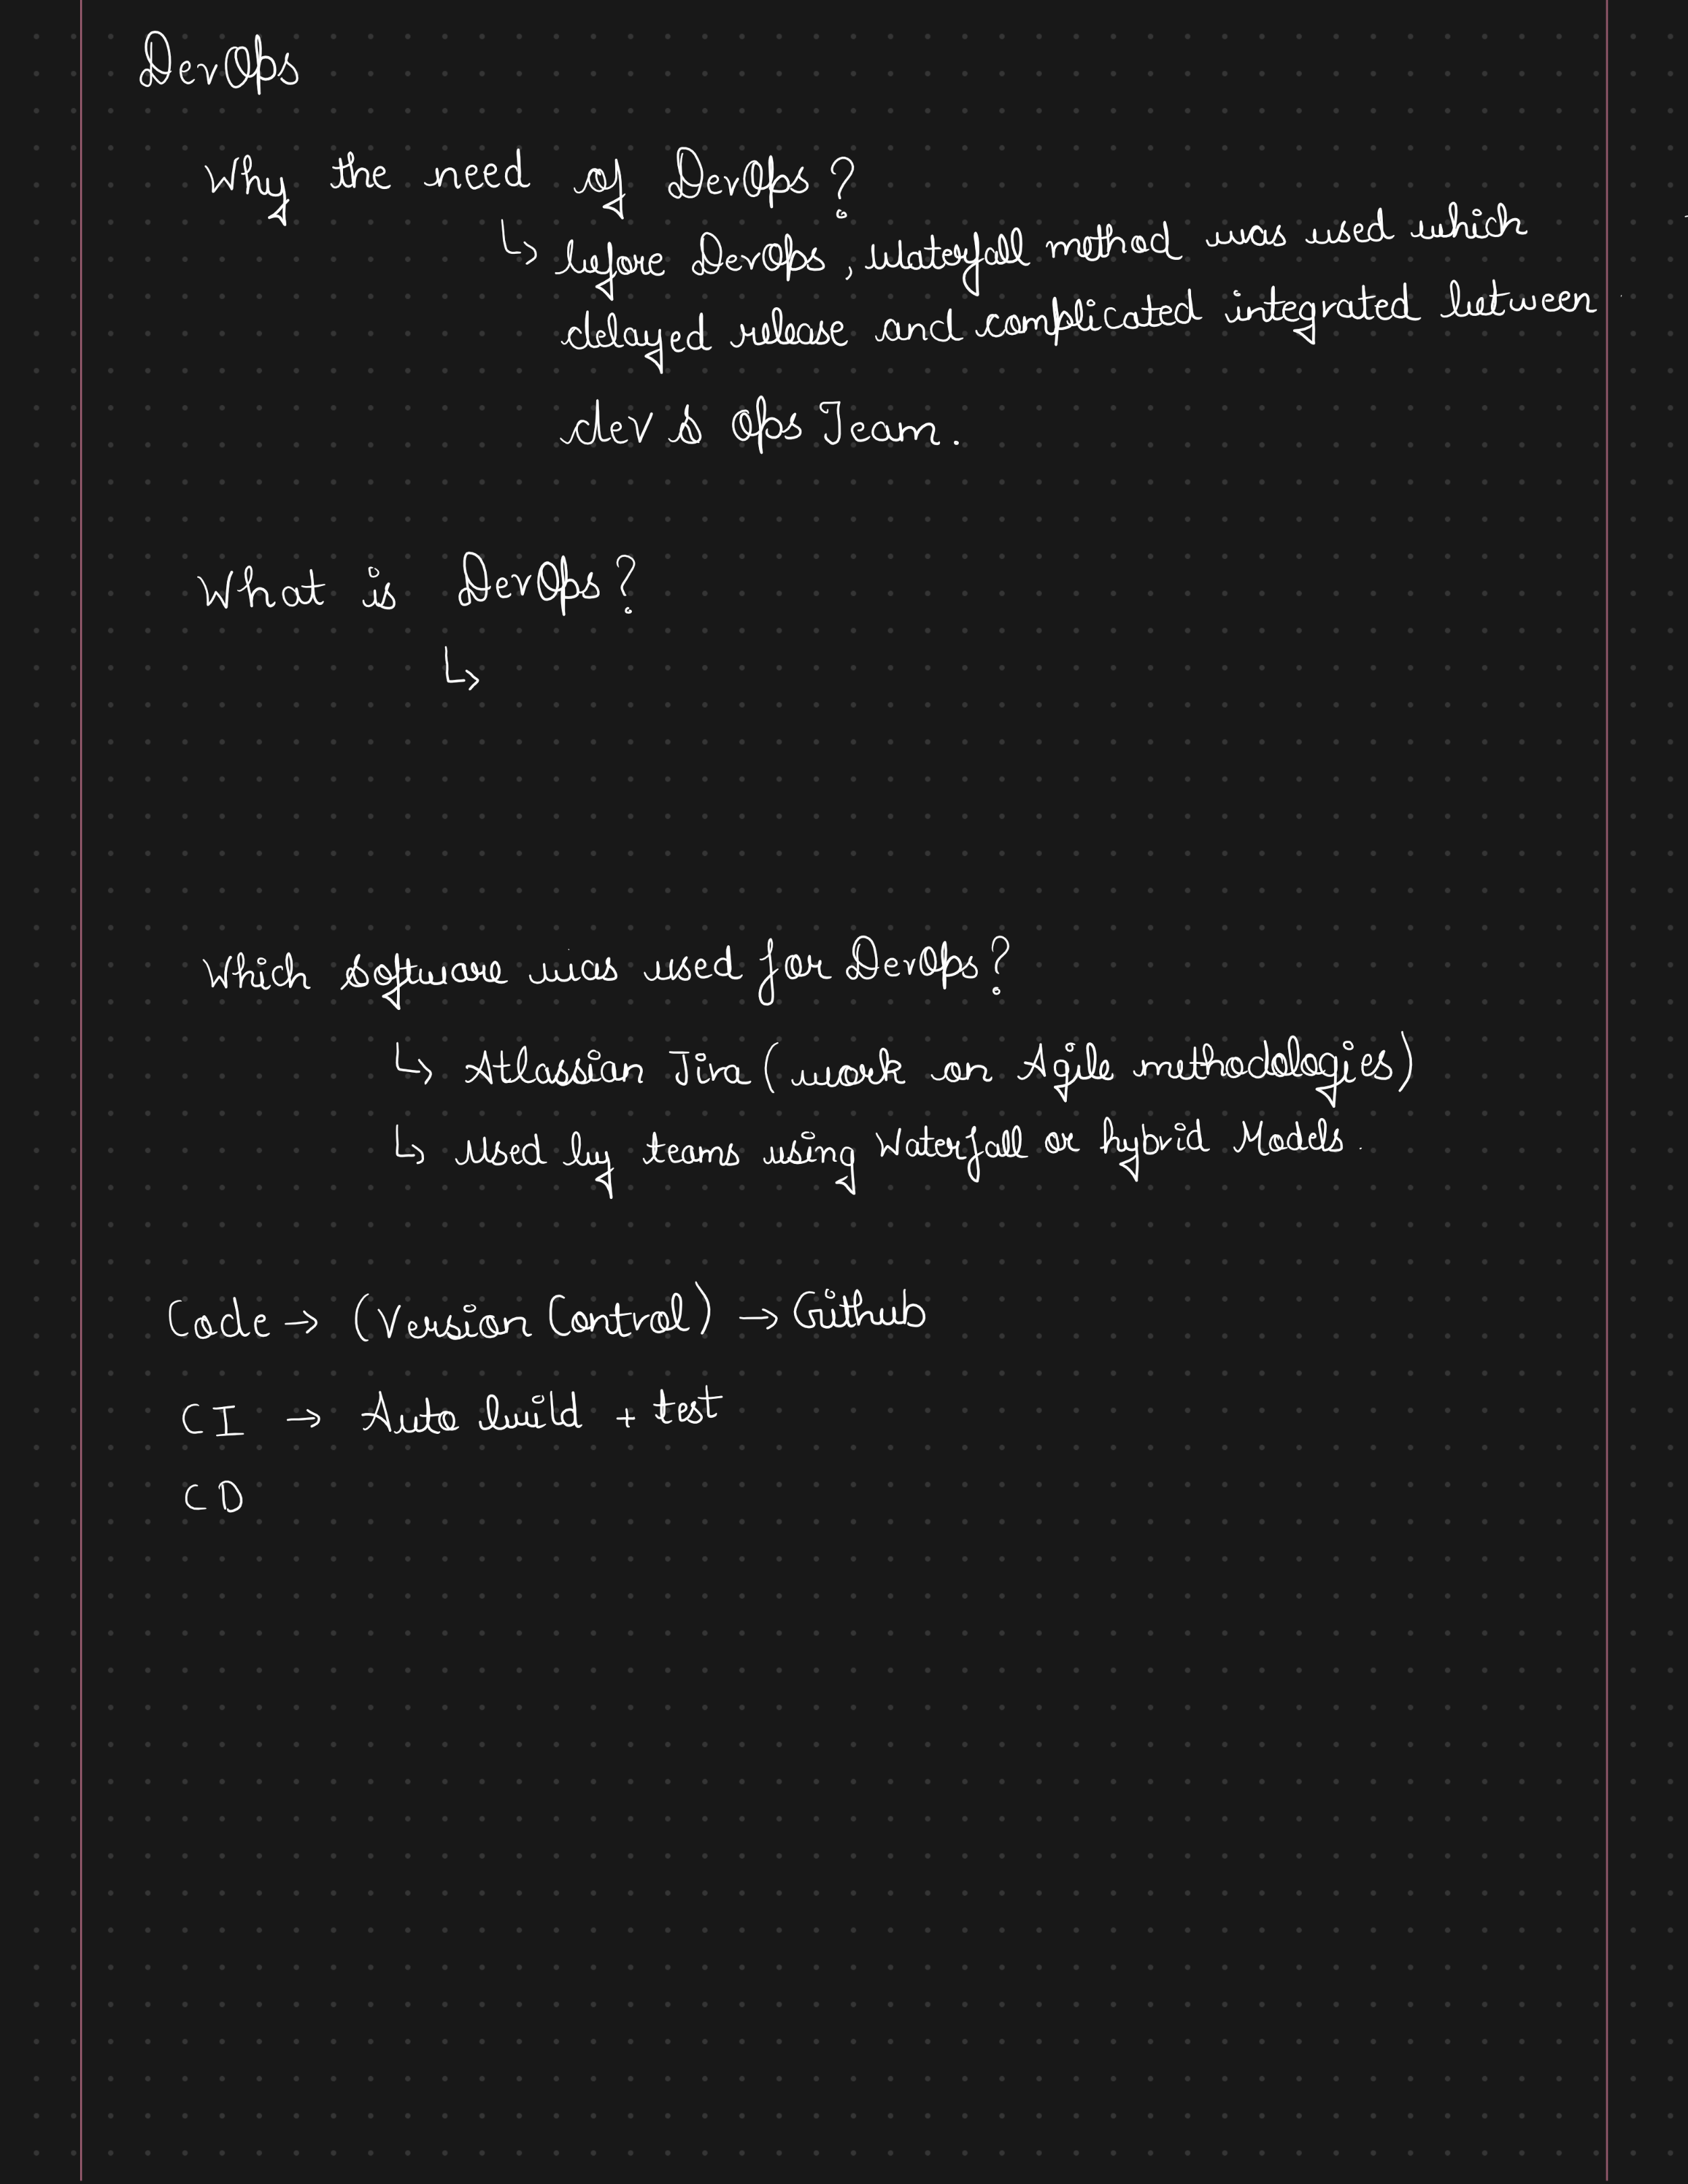 DevOps
Why the need of DevOps?
↳ before DevOps, Waterfall method was used which
delayed release and complicated integrated between
dev & Ops Team.
What is DevOps?
↳
Which software was used for DevOps?
↳ Atlassian Jira (work on Agile methodologies)
↳ Used by teams using Waterfall or hybrid Models.
Code → (Version Control) → Github
CI → Auto build + test
CD